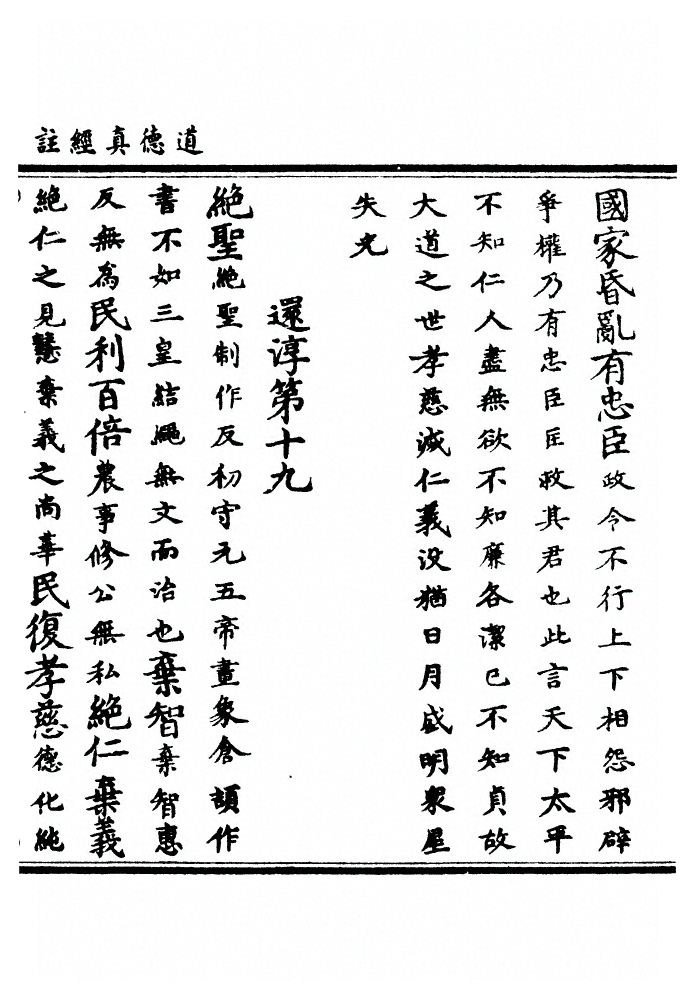 道德真經註
國家昏亂有忠臣政令不行上下相怨邪辟
爭權乃有忠臣匡救其君也此言天下太平
不知仁人盡無欲不知廉各潔己不知貞故
大道之世孝慈滅仁義没猶日月盛明衆星
失光
還淳第十九
絶聖絶聖制作反初守元五帝畫象倉頡作
書不如三皇結繩無文而治也棄智棄智惠
反無為民利百倍農事修公無私絶仁棄義
絶仁之見慧棄義之尚華民復孝慈德化純